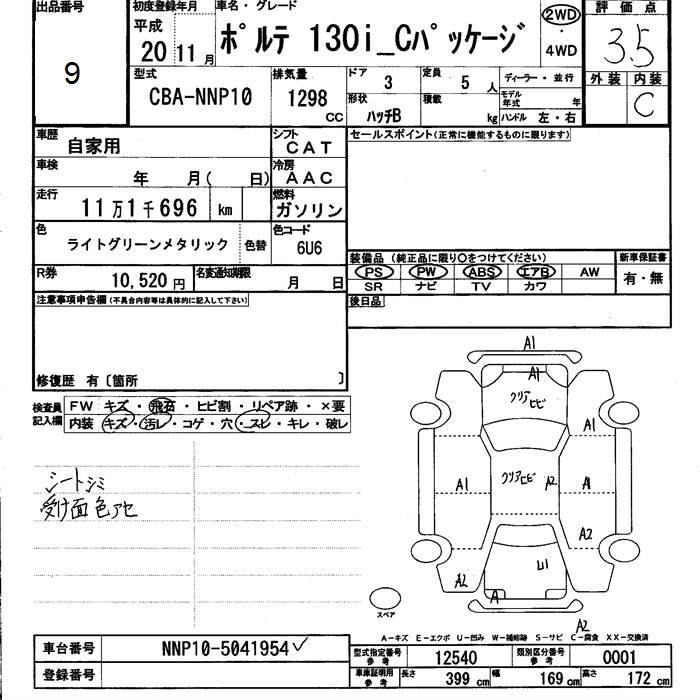 出品番号
9
初度登録年月
平成
20 11月
車名・グレード
ポルテ 130i_Cパッケージ
2WD
・
4WD
評価点
3.5
外装 内装
C
型式
CBA-NNP10
排気量
1298
CC
ドア
3
定員
5 人
ディーラー・並行
形状
ハッチB
積載
kg
モデル年式 年
ハンドル 左・右
車歴
自家用
シフト
CAT
セールスポイント(正常に機能するものに限ります)
車検
年 月( 日)
冷房
AAC
走行
11万1千696 km
燃料
ガソリン
色
ライトグリーンメタリック
色替
色コード
6U6
装備品 (純正品に限り〇をつけてください)
新車保証書
PS PW ABS エアB AW
有・無
SR ナビ TV カワ
R券
10,520円
名変通知期限
月 日
後日品
注意事項申告欄(不具合内容等は具体的に記入して下さい)
修復歴 有〔箇所 〕
検査員記入欄
FW キズ・飛石・ヒビ割・リペア跡・×要
内装 キズ・汚レ・コゲ・穴・スレ・キレ・破レ
シートシミ
受け面色アセ
A1
A1
クリアヒビ
A1
A1
クリアヒビ
A2
A1
A2
U1
A2
A
A2
スペア
A-キズ E-エクボ U-凹み W-補修跡 S-サビ C-腐食 XX-交換済
車台番号
NNP10-5041954✓
登録番号
型式指定番号
参考
12540
類別区分番号
参考
0001
車庫証明用
参考
長さ 399 cm
幅 169 cm
高さ 172 cm